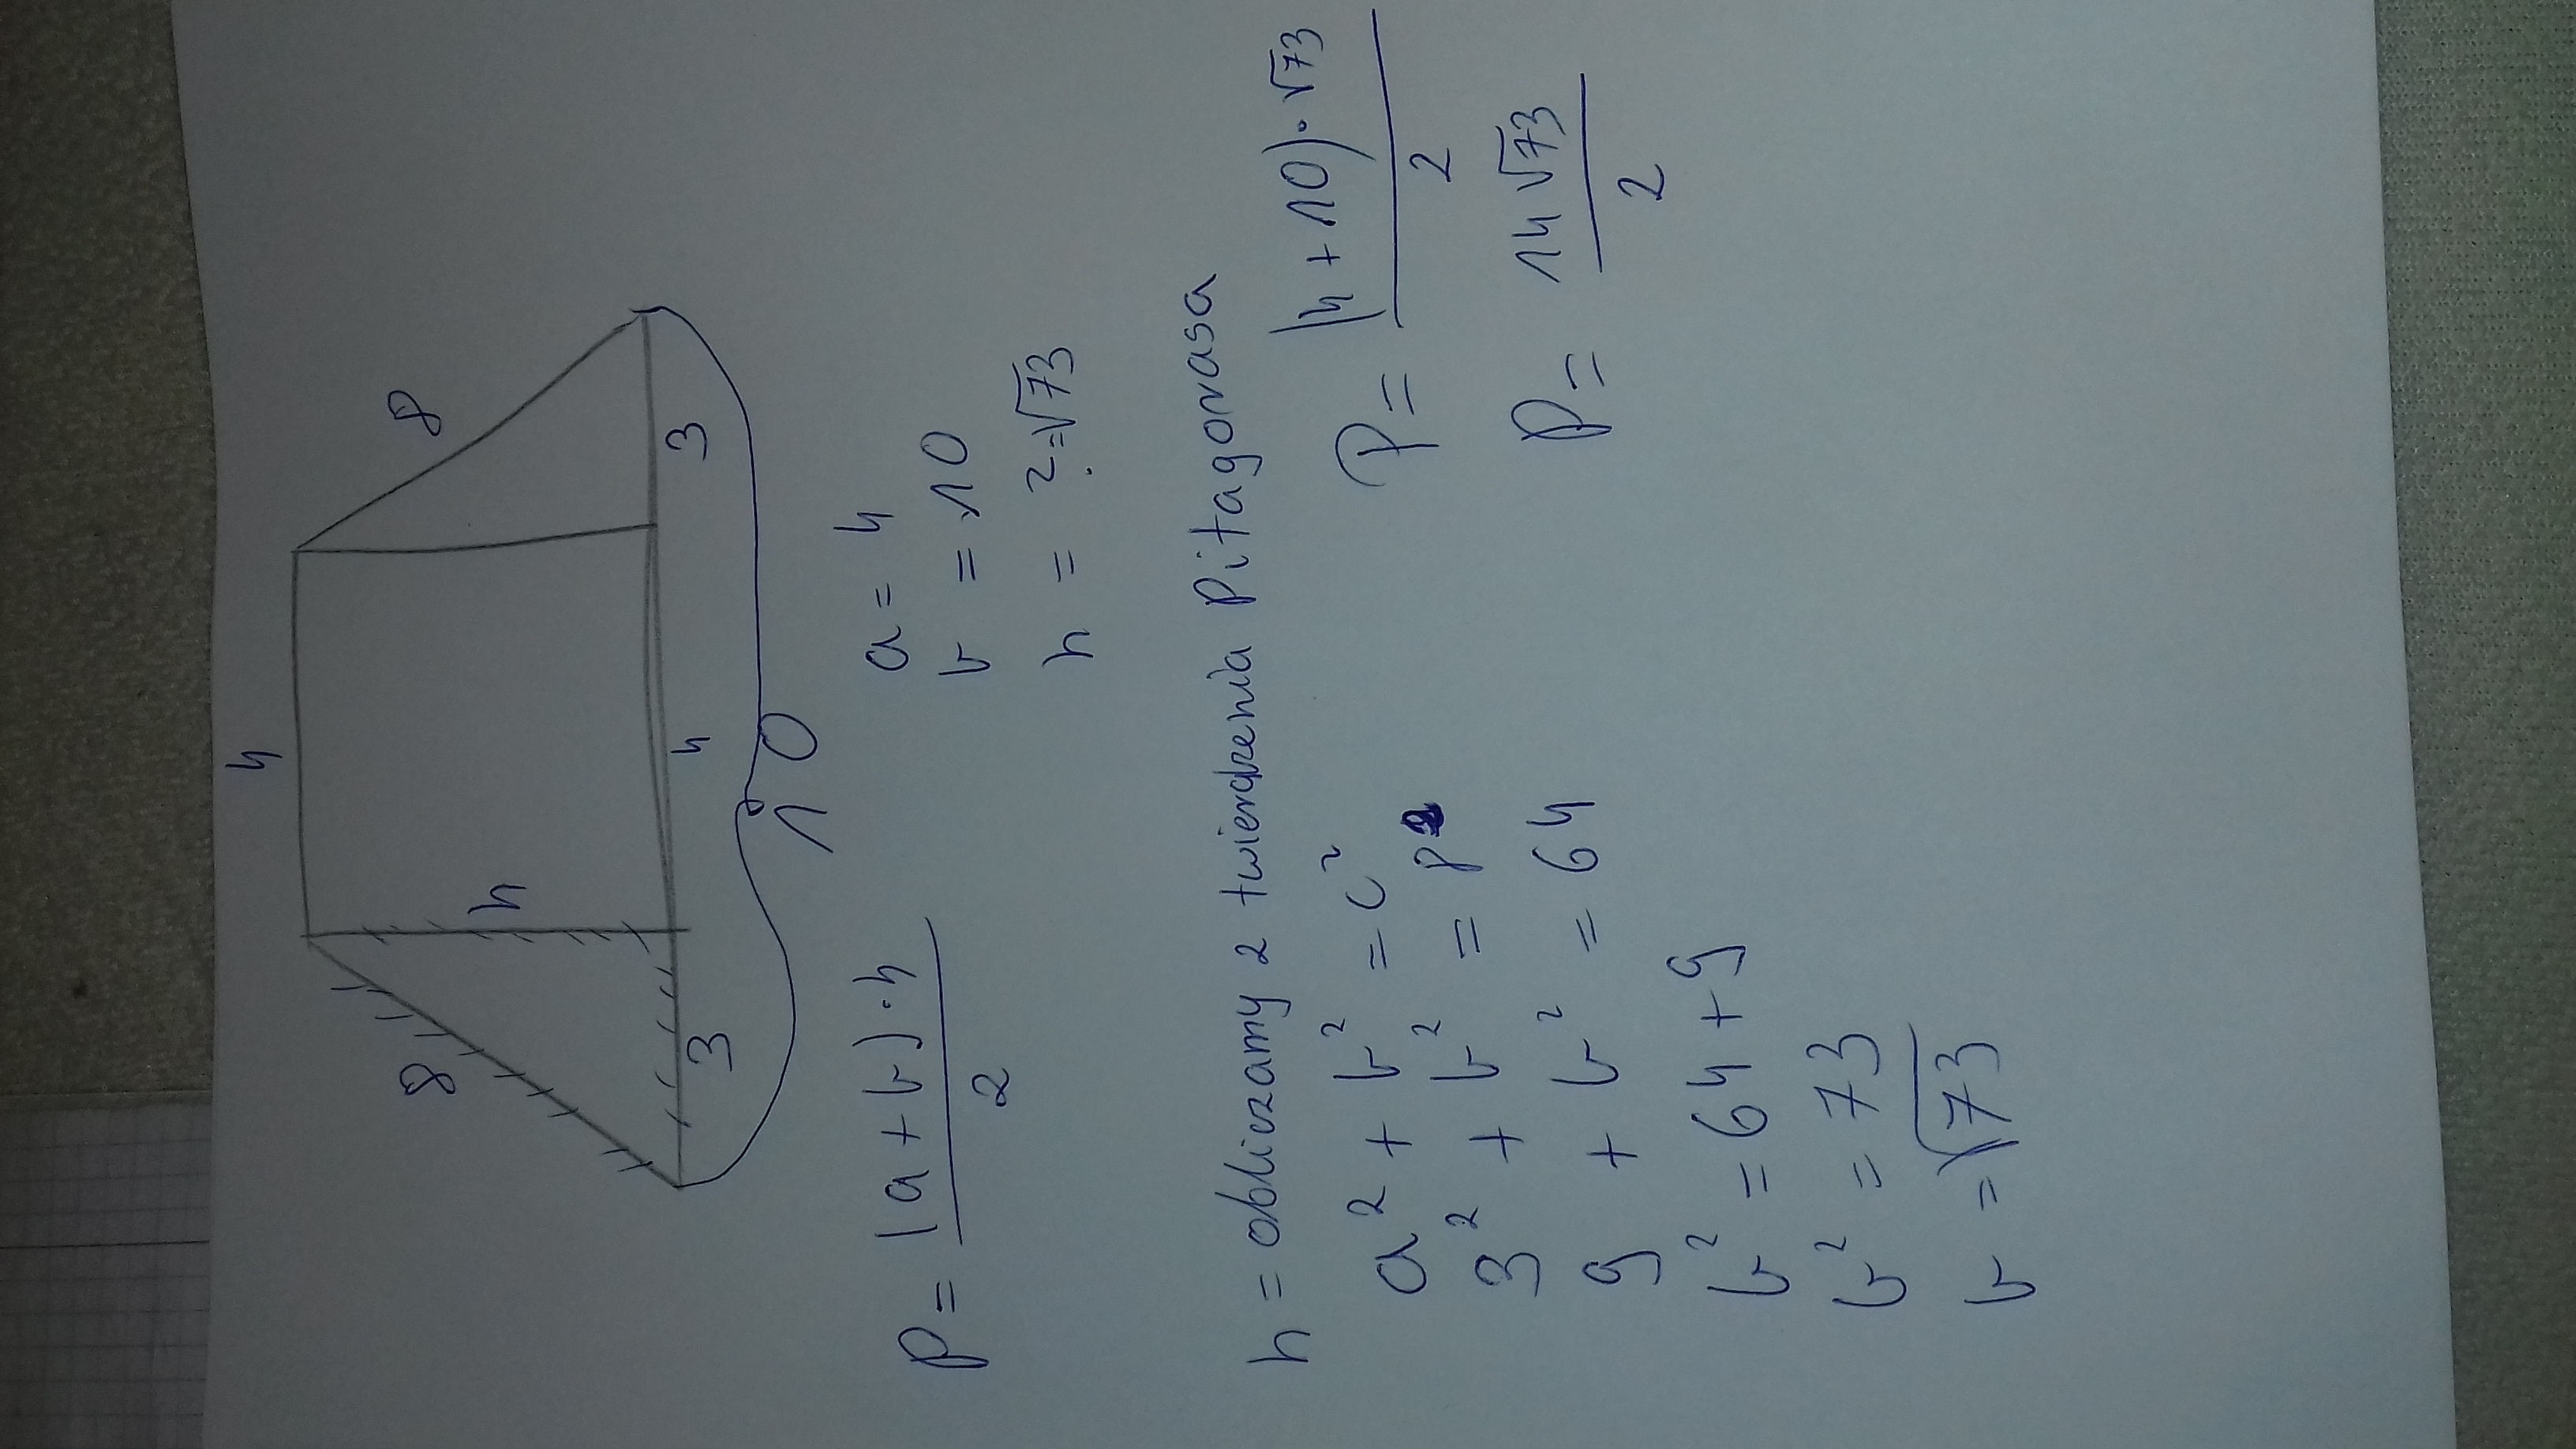 4
8
h
8
3
4
3
10
P = (a + b) · h / 2
a = 4
b = 10
h = ? = √73
h = obliczamy z twierdzenia Pitagorasa
a² + b² = c²
3² + b² = 8²
9 + b² = 64
b² = 64 + 9
b² = 73
b = √73
P = (4 + 10) · √73 / 2
P = 14√73 / 2